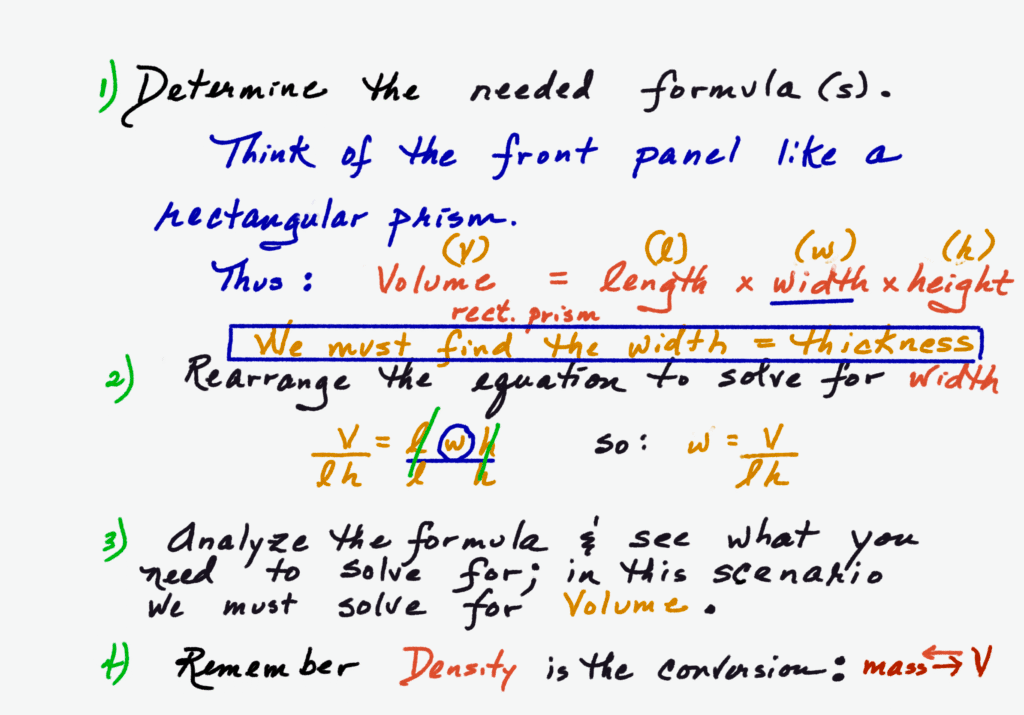 1) Determine the needed formula (s).
Think of the front panel like a
rectangular prism.
(V) (l) (w) (h)
Thus: Volume = length x width x height
rect. prism
We must find the width = thickness
2) Rearrange the equation to solve for width
V/lh = lwh/lh so: w = V/lh
3) Analyze the formula & see what you
need to solve for; in this scenario
we must solve for Volume.
4) Remember Density is the conversion: mass ⇄ V